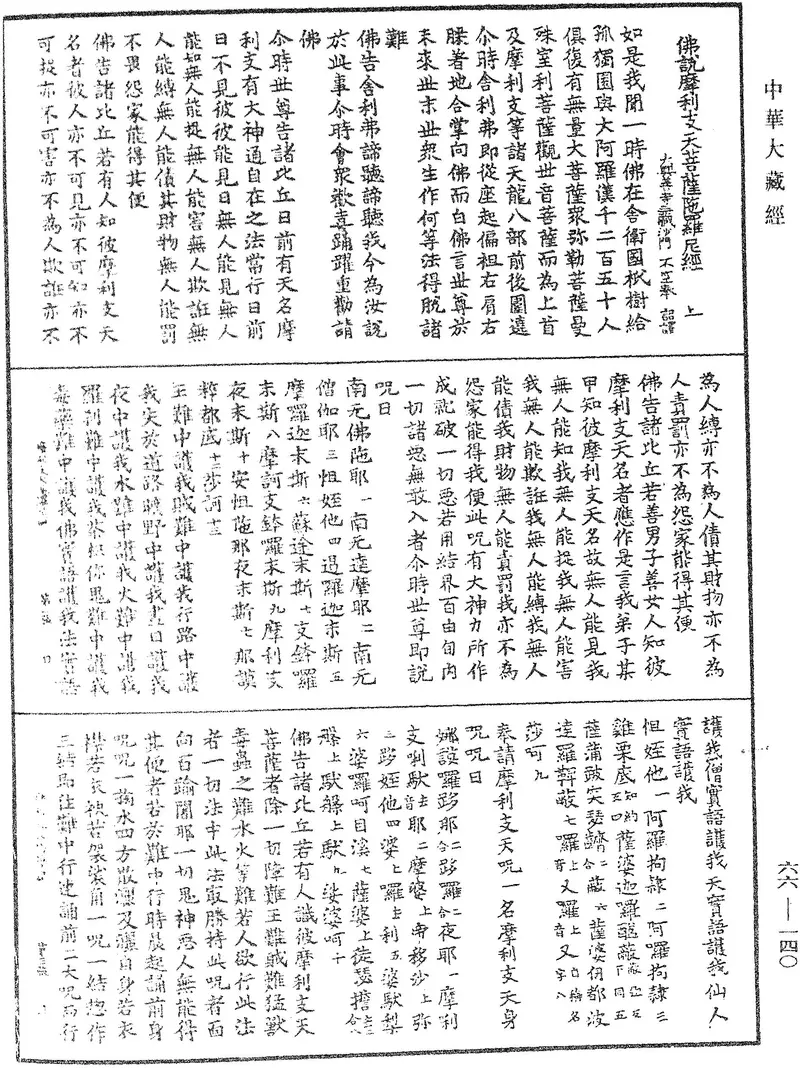 中華大藏經
佛說摩利支天菩薩陀羅尼經 上
大興善寺三藏沙門 不空奉 詔譯
如是我聞一時佛在舍衛國祇樹給
孤獨園與大阿羅漢千二百五十人
俱復有無量大菩薩衆弥勒菩薩曼
殊室利菩薩觀世音菩薩而為上首
及摩利支等諸天龍八部前後圍遶
尒時舍利弗即從座起偏袒右肩右
膝著地合掌向佛而白佛言世尊於
未來世末世衆生作何等法得脫諸
難
佛告舍利弗諦聽諦聽我今為汝說
於此事尒時會衆歡喜踊躍重勸請
佛
尒時世尊告諸比丘日前有天名摩
利支有大神通自在之法常行日前
日不見彼彼能見日無人能見無人
能知無人能捉無人能害無人欺誑無
人能縛無人能債其財物無人能罰
不畏怨家能得其便
佛告諸比丘若有人知彼摩利支天
名者彼人亦不可見亦不可知亦不
可捉亦不可害亦不為人欺誑亦不
為人縛亦不為人債其財物亦不為
人責罰亦不為怨家能得其便
佛告諸比丘若善男子善女人知彼
摩利支天名者應作是言我弟子某
甲知彼摩利支天名故無人能見我
無人能知我無人能捉我無人能害
我無人能欺誑我無人能縛我無人
能債我財物無人能責罰我亦不為
怨家能得我便此呪有大神力所作
成就破一切惡若用結界百由旬內
一切諸惡無敢入者尒時世尊即說
呪曰
南无佛陁耶一南无達摩耶二南无
僧伽耶三怛姪他四遏羅迦末斯五
摩囉迦末斯六蘇途末斯七支鉢羅
末斯八摩訶支鉢囉末斯九摩利支
夜末斯十安怛陁那夜末斯七那謨
粹都底十二莎訶十三
王難中護我賊難中護我行路中護
我失於道路曠野中護我晝日護我
夜中護我水難中護我火難中護我
羅剎難中護我茶枳你鬼難中護我
毒藥難中護我佛實語護我法實語
護我僧實語護我天實語護我仙人
實語護我
怛姪他一阿羅拘隷二阿囉拘隷三
莎呵九
奉請摩利支天呪一名摩利支天身
呪呪曰
佛告諸比丘若有人識彼摩利支天
菩薩者除一切障難王難賊難猛獸
毒蟲之難水火等難若人欲行此法
者一切法中此法最勝持此呪者面
向百踰闍耶一切鬼神惡人無能得
其便者若於難中行時晨起誦前身
呪呪一掬水四方散灑及灑自身若衣
襟若衣袂若袈裟角一呪一結惣作
三結即往難中行速誦前二大呪而行
六六——一四〇